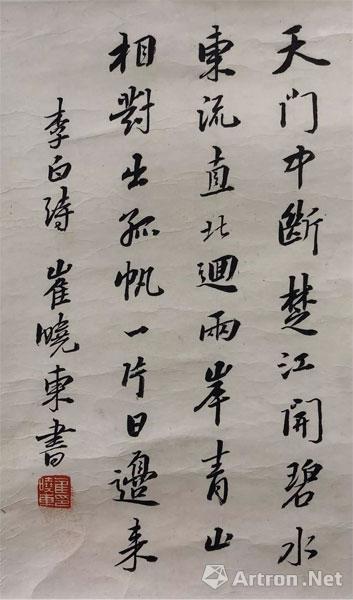 天门中斷楚江開碧水
東流直北迴兩岸青山
相對出孤帆一片日邊来
李白诗 崔曉東書
崔曉東印
Artron.Net
雅昌艺术网